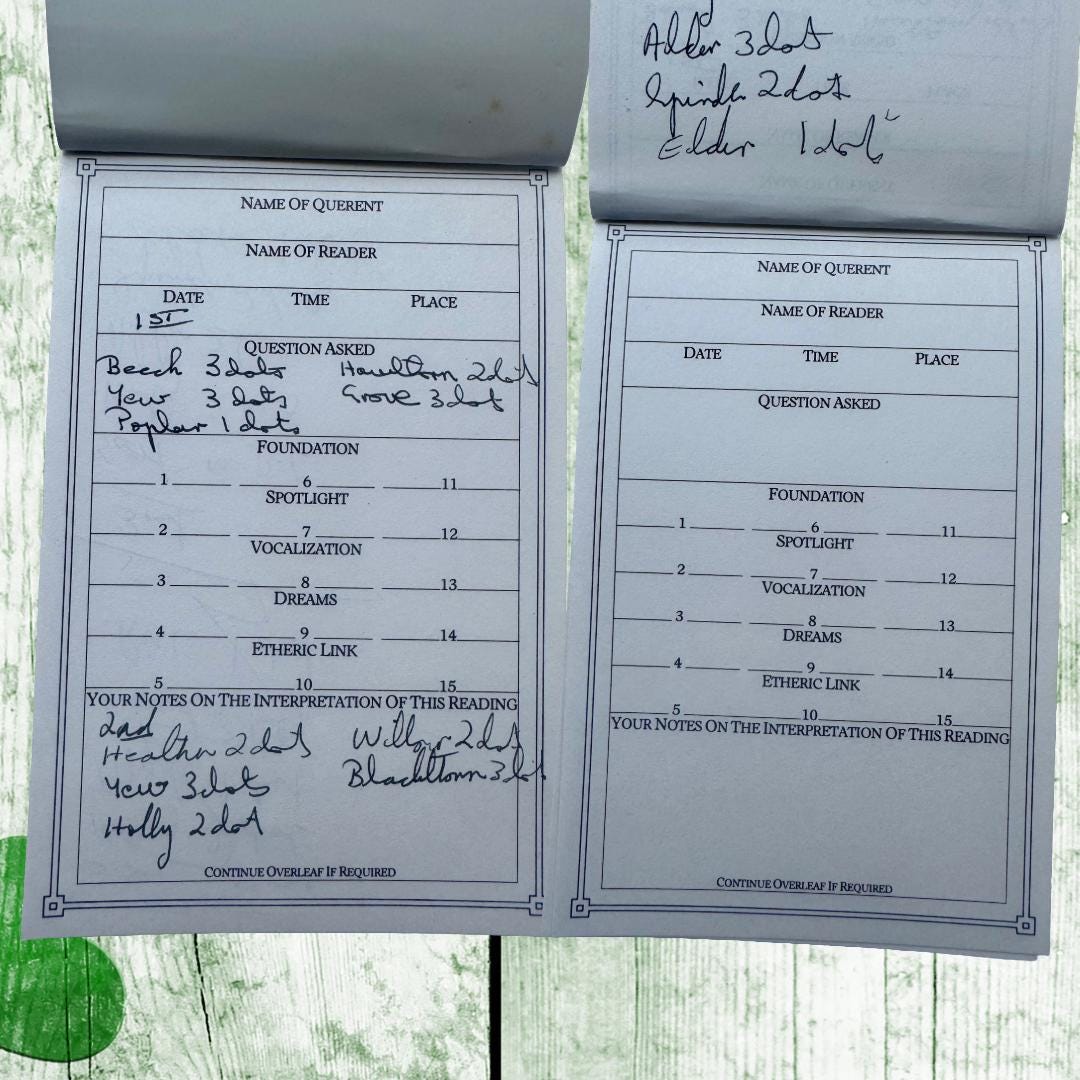 NAME OF QUERENT
NAME OF READER
DATE TIME PLACE
1ST
QUESTION ASKED
Beech 3 dots Hawthorn 2 dot
Yew 3 dots Grove 3 dot
Poplar 1 dots
FOUNDATION
1 6 11
SPOTLIGHT
2 7 12
VOCALIZATION
3 8 13
DREAMS
4 9 14
ETHERIC LINK
5 10 15
YOUR NOTES ON THE INTERPRETATION OF THIS READING
2nd
Heather 2 dots Willow 2 dot
Yew 3 dots Blackthorn 3 dot
Holly 2 dot
CONTINUE OVERLEAF IF REQUIRED
Alder 3 dot
Spindle 2 dot
Elder 1 dot
NAME OF QUERENT
NAME OF READER
DATE TIME PLACE
QUESTION ASKED
FOUNDATION
1 6 11
SPOTLIGHT
2 7 12
VOCALIZATION
3 8 13
DREAMS
4 9 14
ETHERIC LINK
5 10 15
YOUR NOTES ON THE INTERPRETATION OF THIS READING
CONTINUE OVERLEAF IF REQUIRED